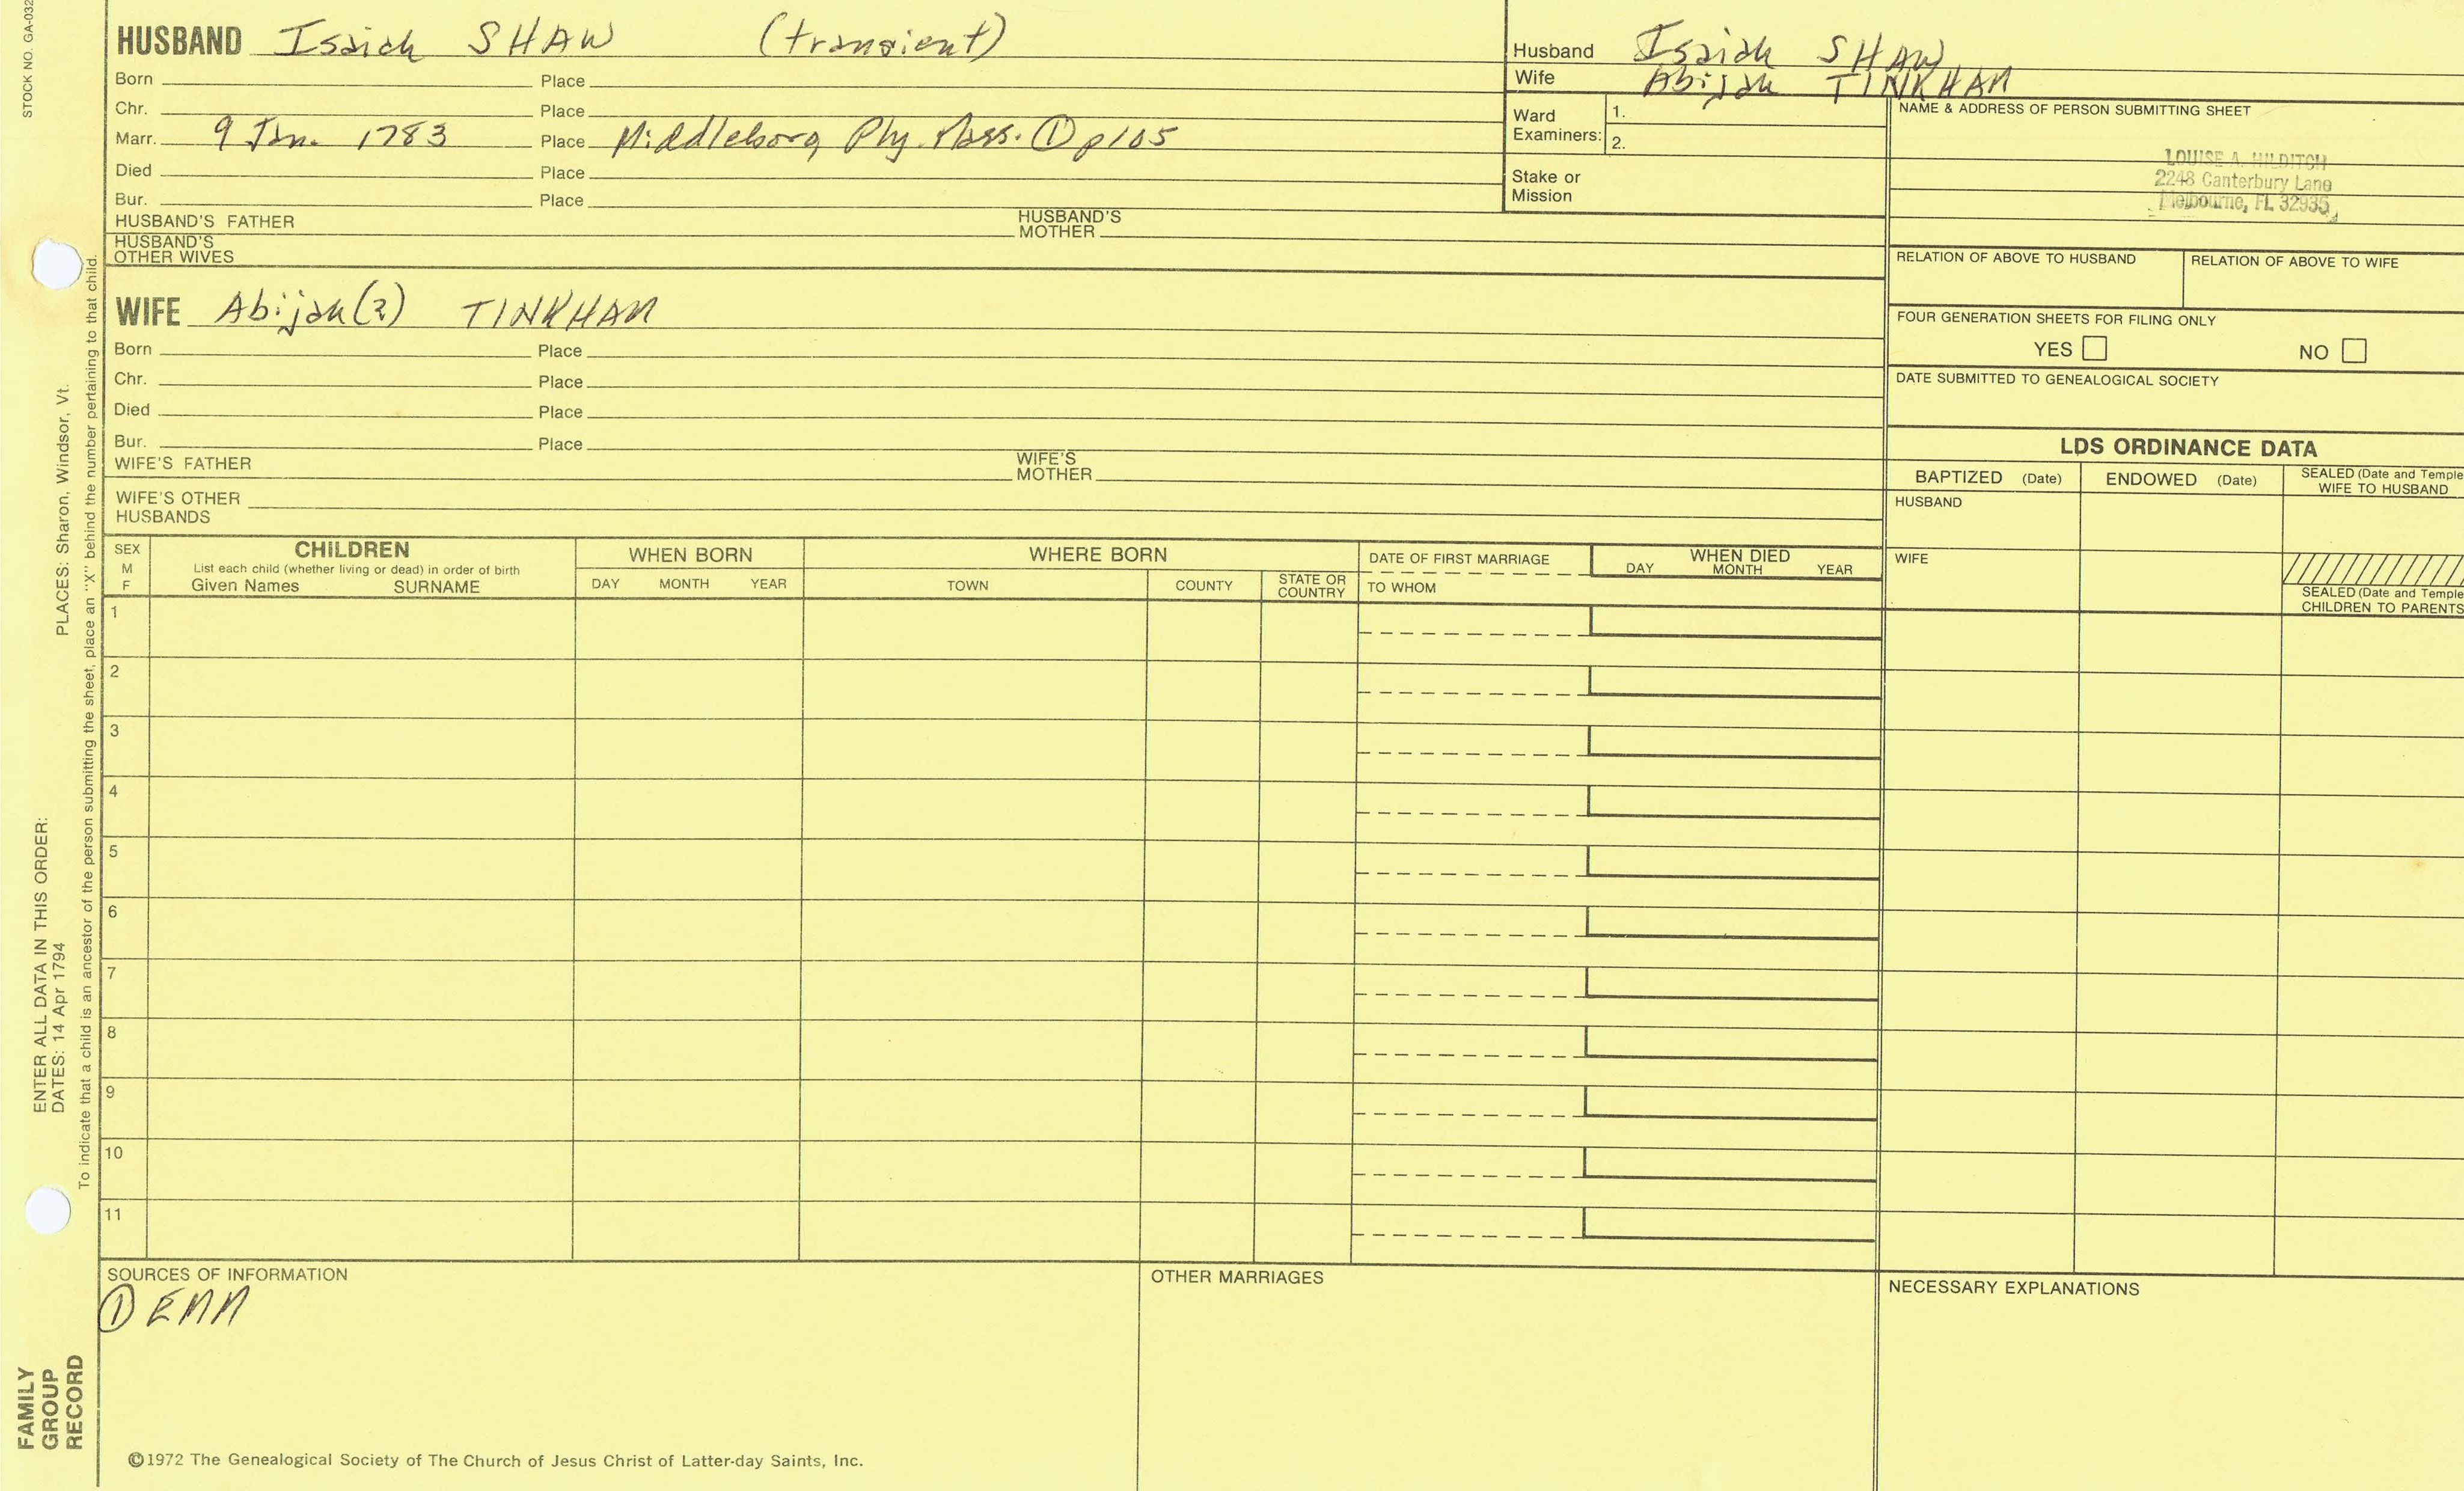 STOCK NO. GA-032
HUSBAND Isaiah SHAW (transient)
Born Place
Chr. Place
Marr. 9 Jan. 1783 Place Middleborg Ply. Mass. ① p105
Died Place
Bur. Place
HUSBAND'S FATHER HUSBAND'S MOTHER
HUSBAND'S OTHER WIVES
Husband Isaiah SHAW
Wife Abijah TINKHAM
Ward Examiners: 1.
2.
Stake or Mission
NAME & ADDRESS OF PERSON SUBMITTING SHEET
LOUISE A. HILDITCH
2248 Canterbury Lane
Melbourne, FL 32935
RELATION OF ABOVE TO HUSBAND RELATION OF ABOVE TO WIFE
FOUR GENERATION SHEETS FOR FILING ONLY
YES NO
DATE SUBMITTED TO GENEALOGICAL SOCIETY
WIFE Abijah(?) TINKHAM
Born Place
Chr. Place
Died Place
Bur. Place
WIFE'S FATHER WIFE'S MOTHER
WIFE'S OTHER HUSBANDS
LDS ORDINANCE DATA
BAPTIZED (Date) ENDOWED (Date) SEALED (Date and Temple
WIFE TO HUSBAND
HUSBAND
WIFE
SEALED (Date and Temple
CHILDREN TO PARENTS
SEX
M
F
CHILDREN
List each child (whether living or dead) in order of birth
Given Names SURNAME
WHEN BORN
DAY MONTH YEAR
WHERE BORN
TOWN COUNTY STATE OR COUNTRY
DATE OF FIRST MARRIAGE
TO WHOM
WHEN DIED
DAY MONTH YEAR
1
2
3
4
5
6
7
8
9
10
11
SOURCES OF INFORMATION
① EMM
OTHER MARRIAGES
NECESSARY EXPLANATIONS
©1972 The Genealogical Society of The Church of Jesus Christ of Latter-day Saints, Inc.
ENTER ALL DATA IN THIS ORDER:
DATES: 14 Apr 1794 PLACES: Sharon, Windsor, Vt.
To indicate that a child is an ancestor of the person submitting the sheet, place an "X" behind the number pertaining to that child.
FAMILY
GROUP
RECORD